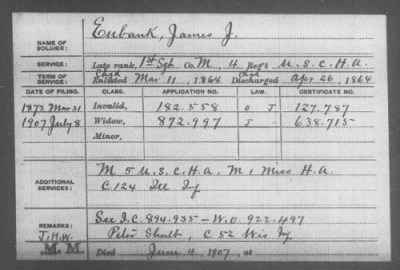 NAME OF SOLDIER: Eubank, James J.
SERVICE: Late rank, 1st Sgt Co. M, 4 Reg't U.S.C.H.A.
TERM OF SERVICE: Enlisted Mar 11, 1864 Discharged Apr 26, 1864
DATE OF FILING. CLASS. APPLICATION NO. LAW. CERTIFICATE NO.
1873 Mar 31 Invalid, 182.558 O J 127.787
1907 July 8 Widow, 872.997 J 638.715
Minor,
ADDITIONAL SERVICES: M 5 U.S.C.H.A. M 1 Miss H.A.
C 124 Ill Inf
REMARKS: See I.C. 894.935 - W.O. 922.497
J.H.W. Peter Shult, C 52 Wis Inf
M.M. Died June 4, 1907, at